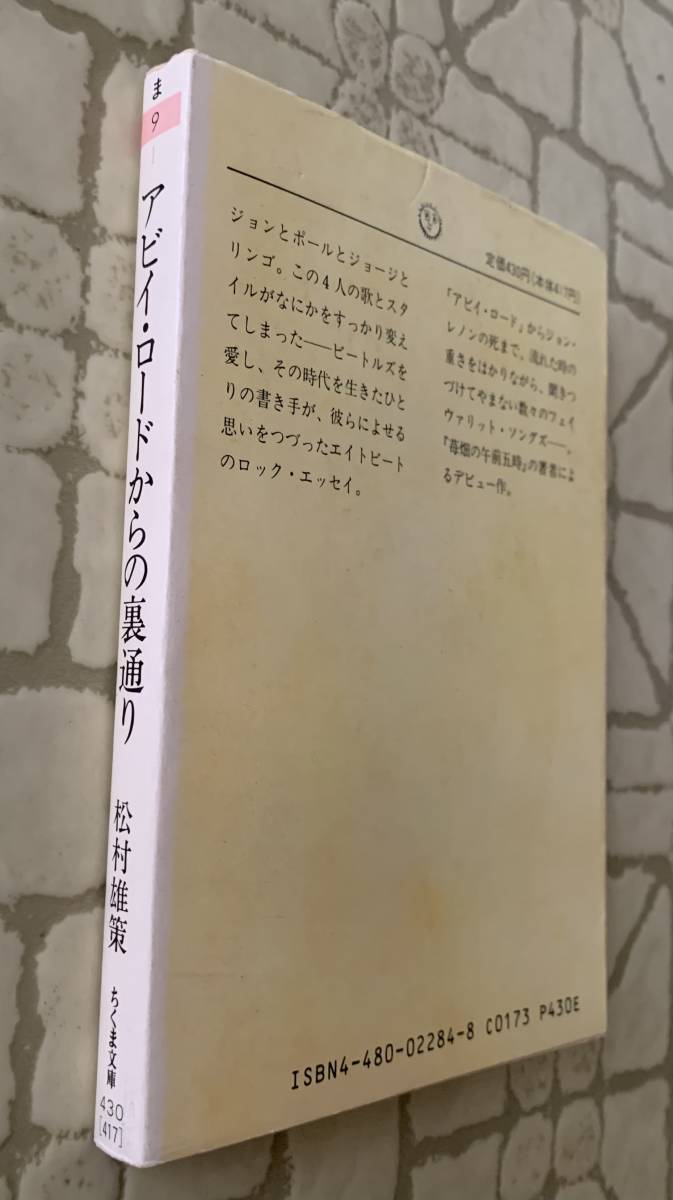 ま
9
アビイ・ロードからの裏通り
松村雄策
ちくま文庫
430
[417]
ジョンとポールとジョージと
リンゴ。この4人の歌とスタ
イルがなにかをすっかり変え
てしまった──ビートルズを
愛し、その時代を生きたひと
りの書き手が、彼らによせる
思いをつづったエイトビート
のロック・エッセイ。
定価430円(本体417円)
「アビイ・ロード」からジョン・
レノンの死まで、流れた時の
重さをはかりながら、聞きつ
づけてやまない数々のフェイ
ヴァリット・ソングズ──。
『苺畑の午前五時』の著者によ
るデビュー作。
ISBN4-480-02284-8 C0173 P430E